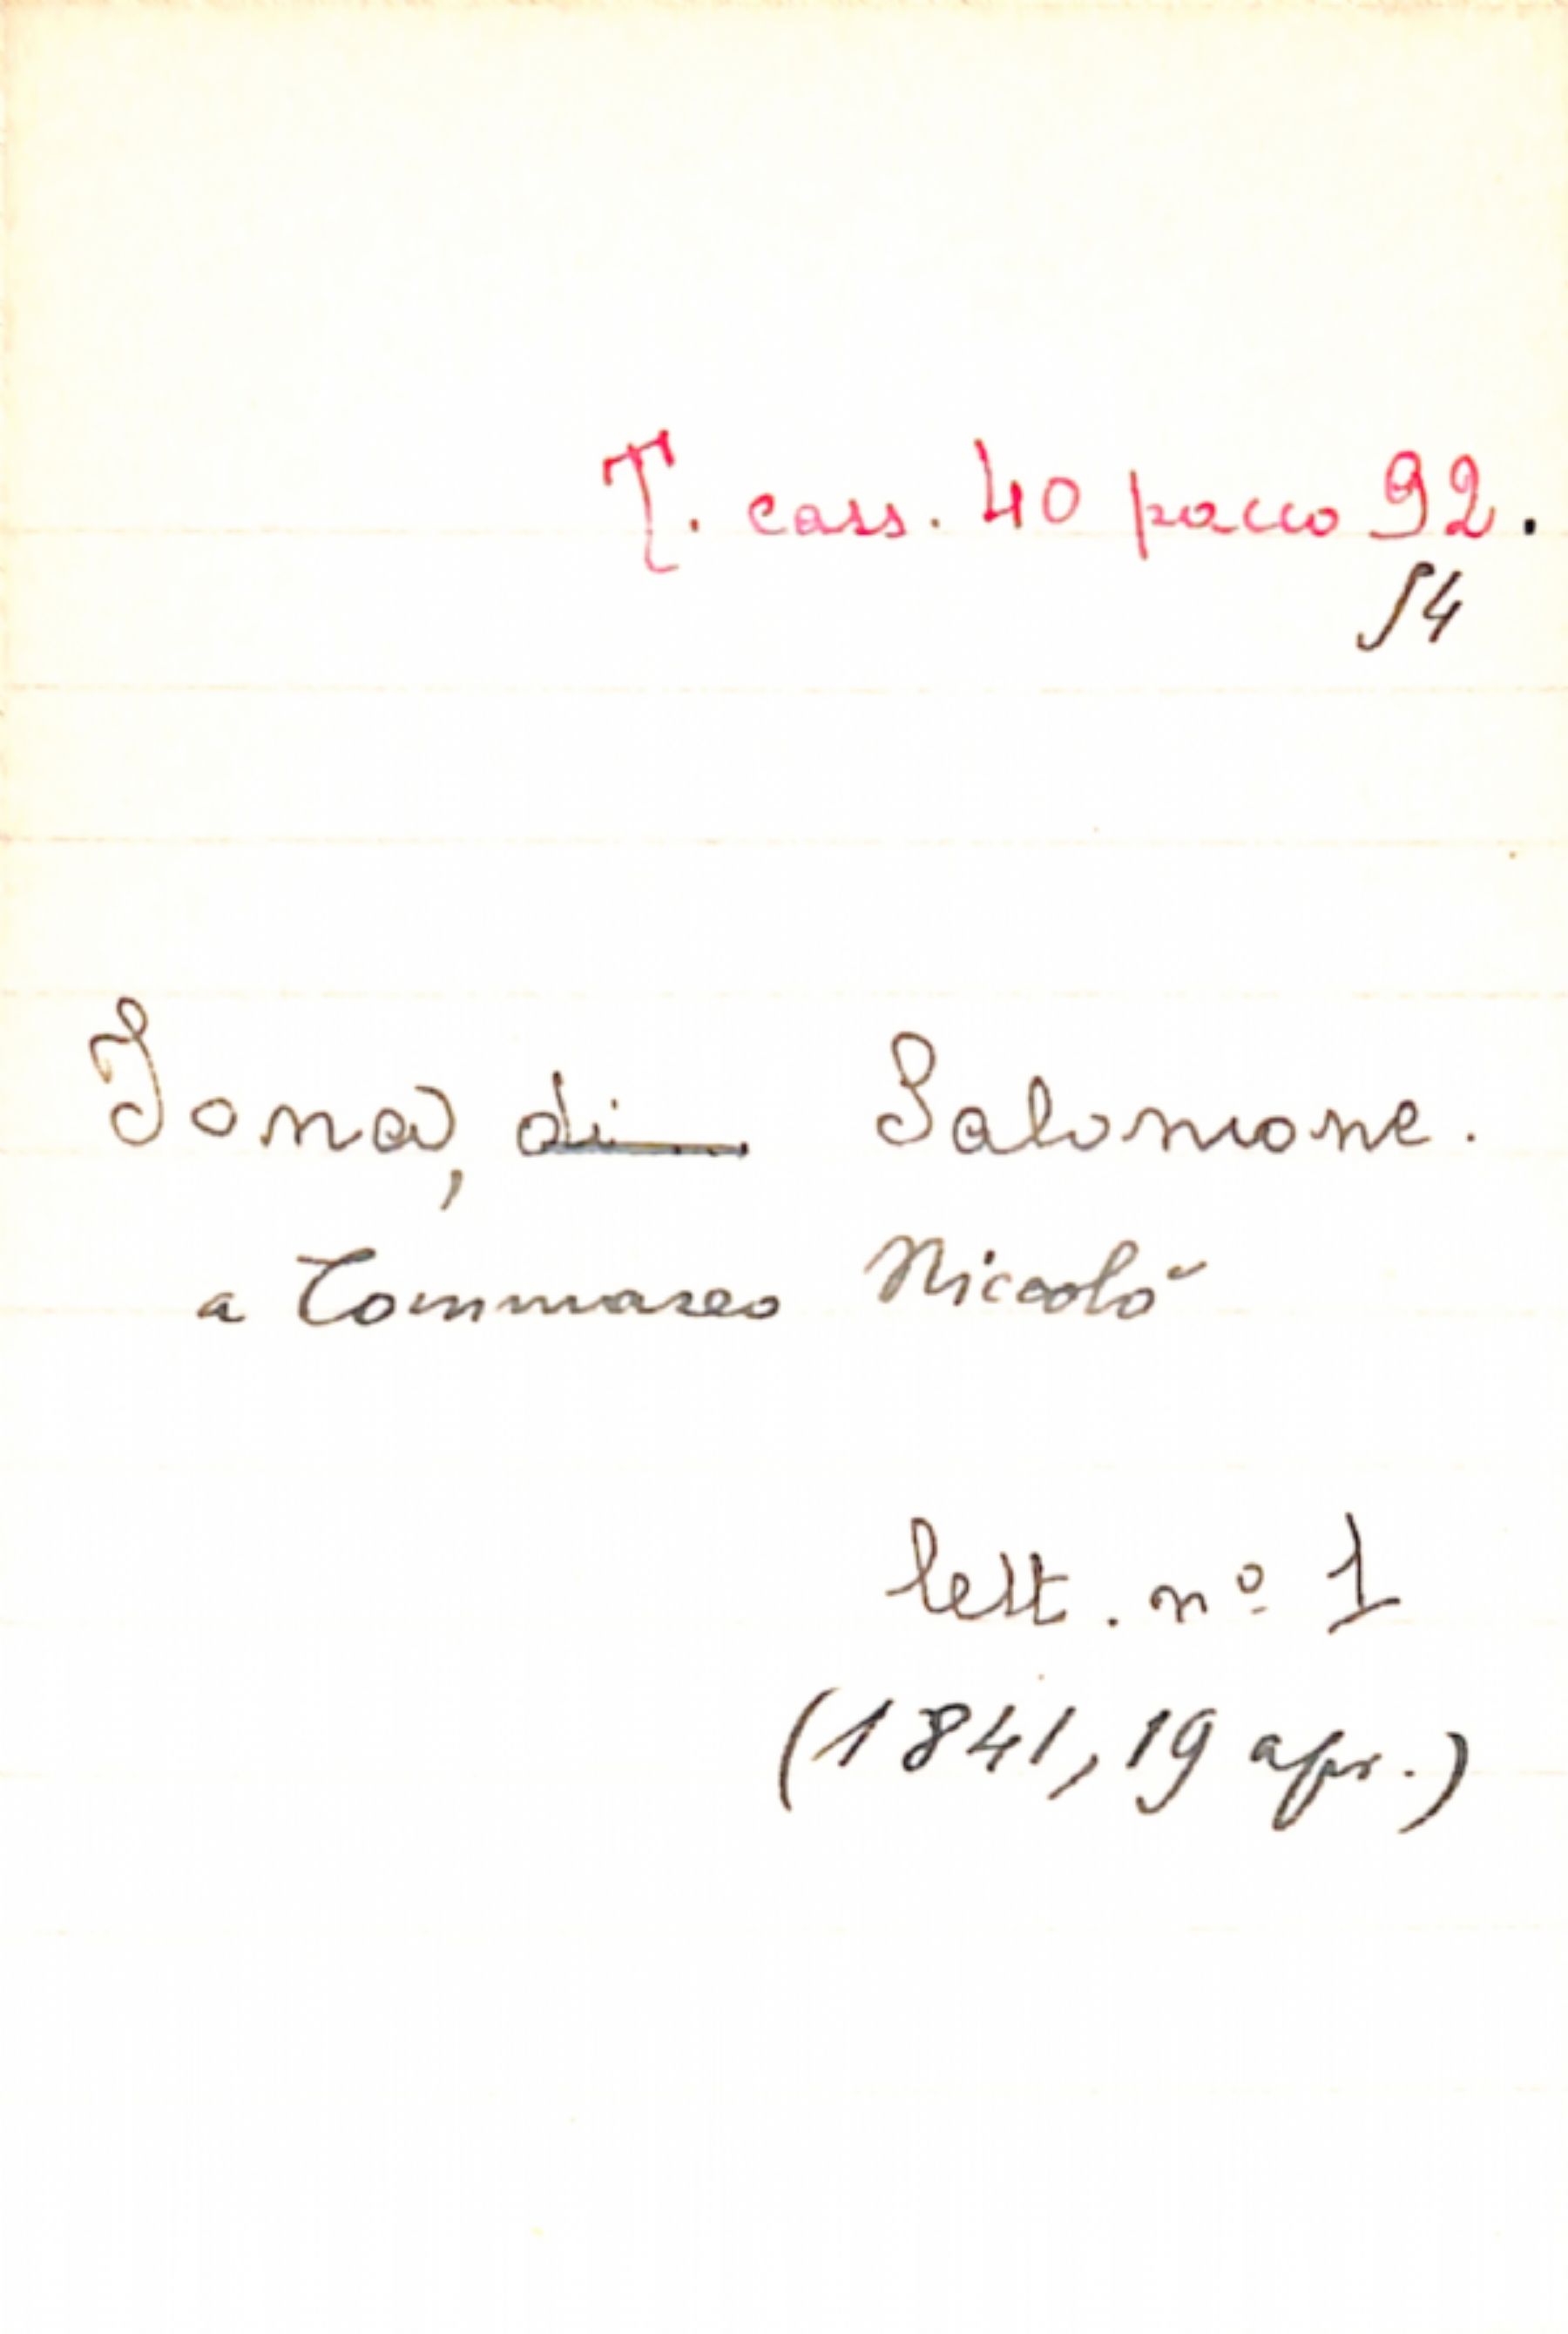 T. cass. 40 pacco 92.
54
Jona, di Salomone.
a Tommaseo Niccolò
lett. nº 1
(1841, 19 apr.)